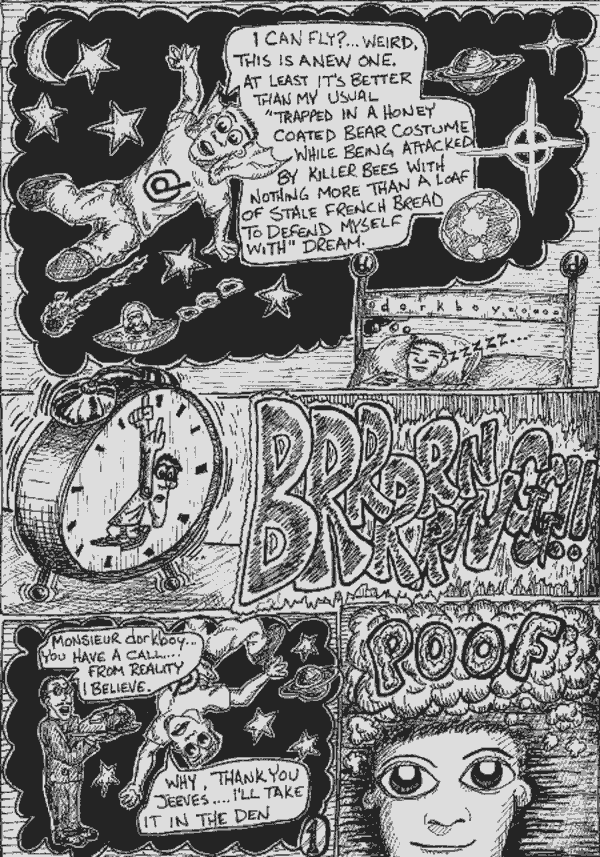 I CAN FLY?... WEIRD,
THIS IS A NEW ONE.
AT LEAST IT'S BETTER
THAN MY USUAL
"TRAPPED IN A HONEY
COATED BEAR COSTUME
WHILE BEING ATTACKED
BY KILLER BEES WITH
NOTHING MORE THAN A LOAF
OF STALE FRENCH BREAD
TO DEFEND MYSELF
WITH" DREAM.
d
d
dorkboy
zzzzz....
MONSIEUR dorkboy...
YOU HAVE A CALL....
FROM REALITY
I BELIEVE.
POOF
WHY, THANK YOU
JEEVES.... I'LL TAKE
IT IN THE DEN
1